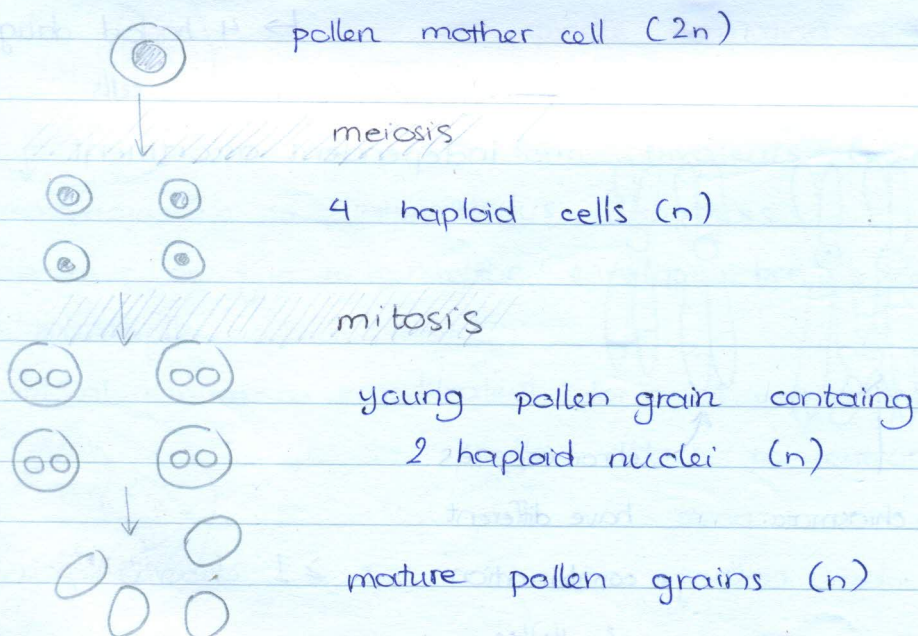 pollen mother cell (2n)
meiosis
4 haploid cells (n)
mitosis
young pollen grain containg
2 haploid nuclei (n)
mature pollen grains (n)